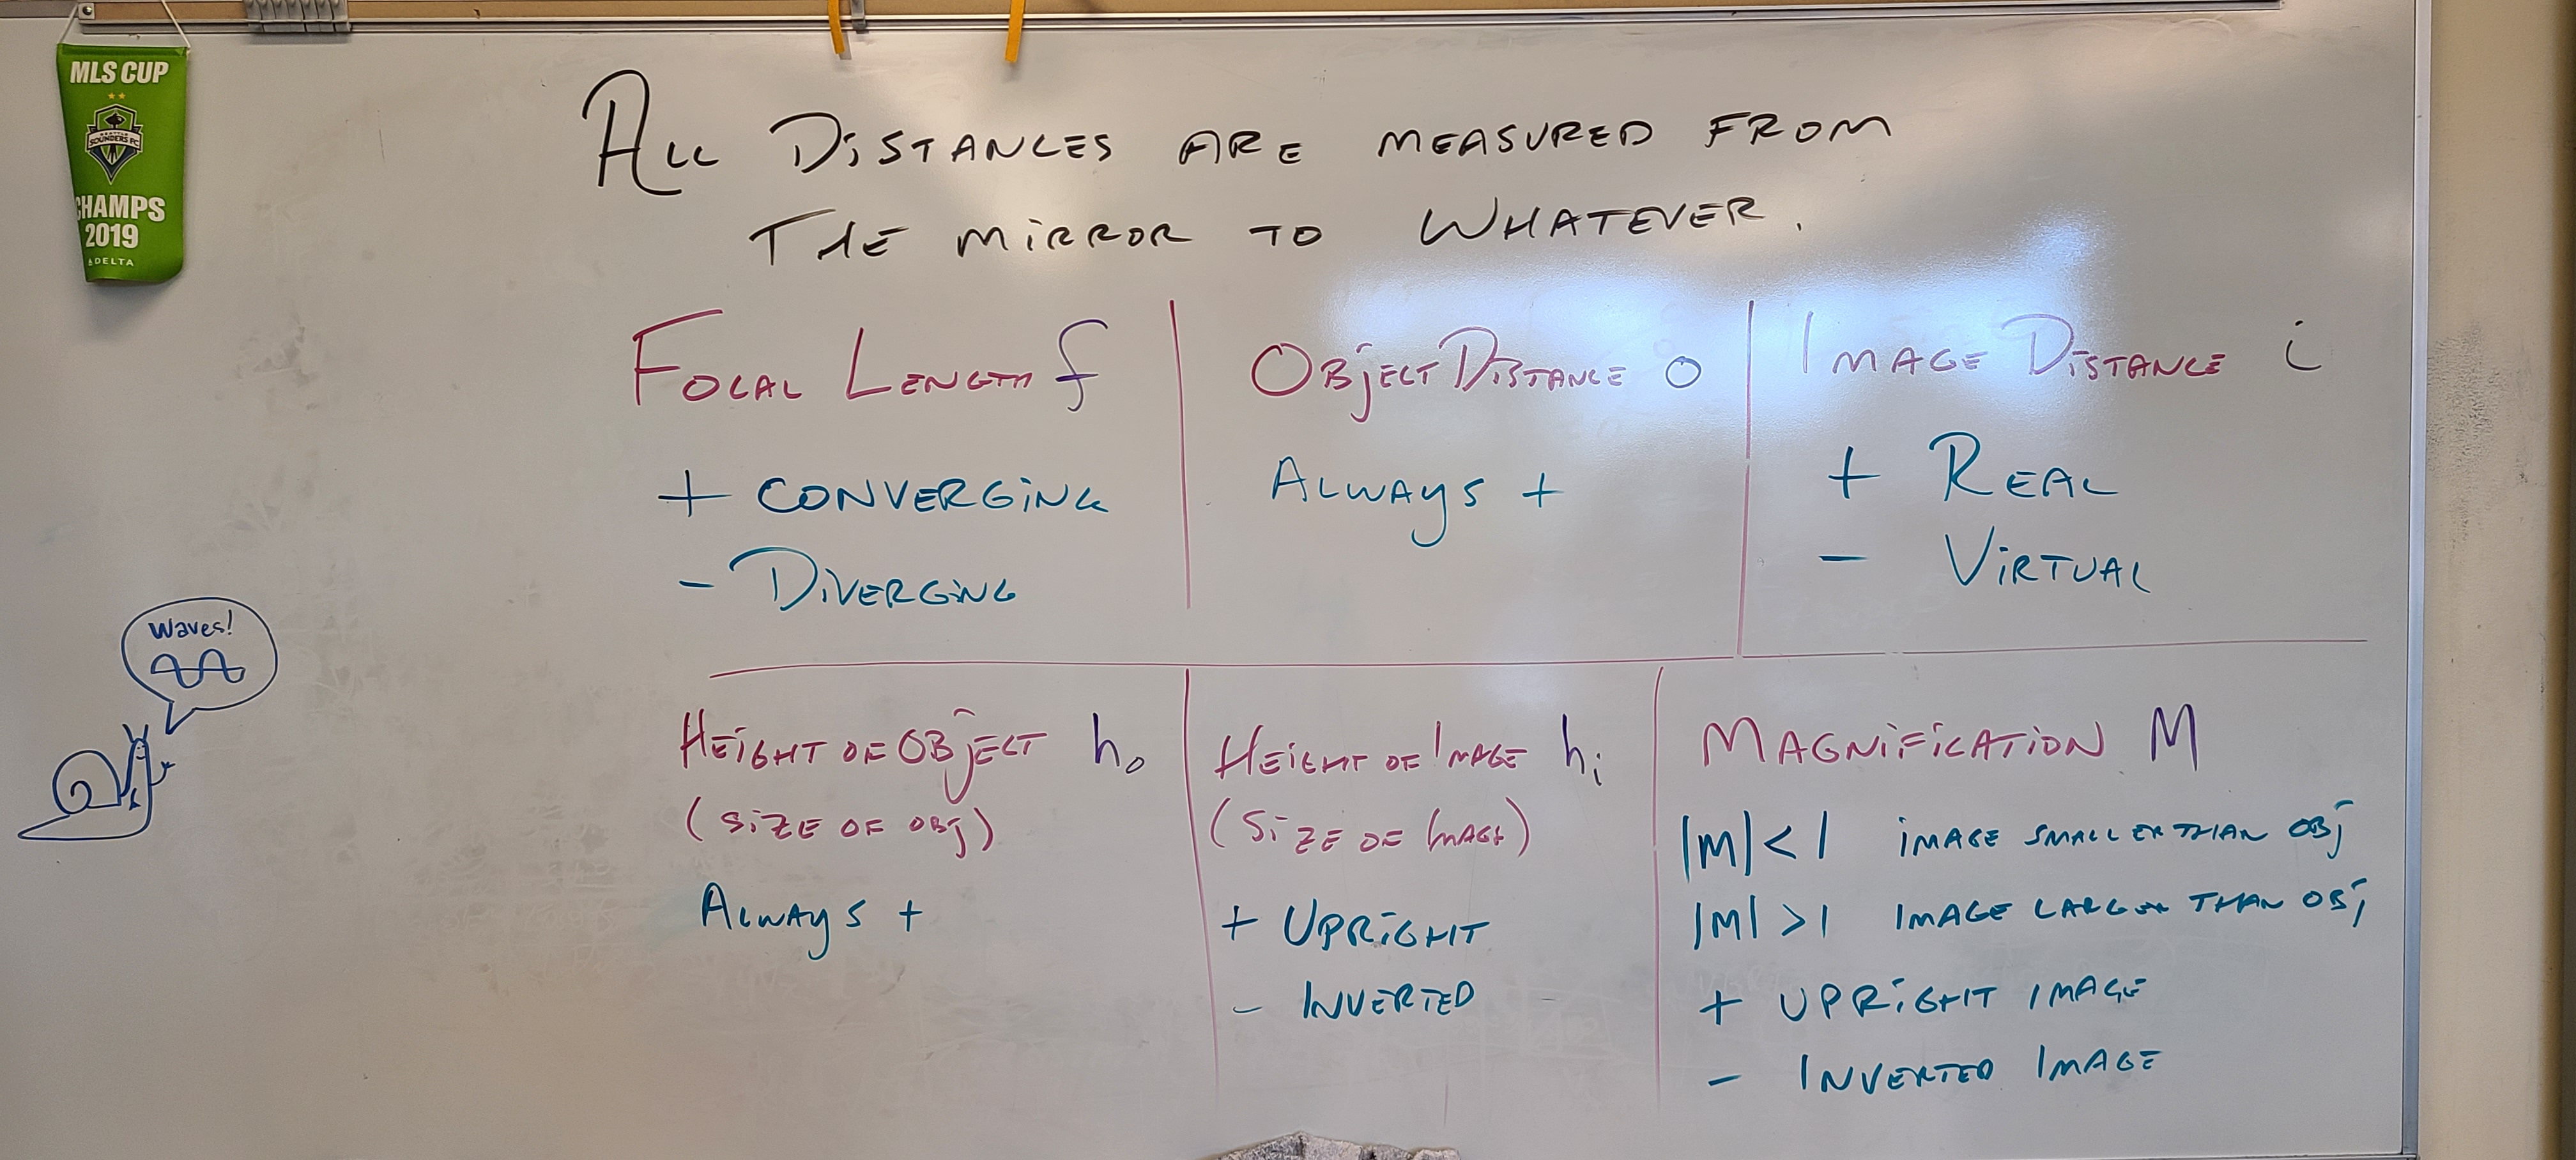 MLS CUP
SEATTLE
SOUNDERS FC
CHAMPS
2019
DELTA
ALL DISTANCES ARE MEASURED FROM
THE MIRROR TO WHATEVER.
FOCAL LENGTH f
+ CONVERGING
- DIVERGING
OBJECT DISTANCE o
ALWAYS +
IMAGE DISTANCE i
+ REAL
- VIRTUAL
Waves!
HEIGHT OF OBJECT ho
(SIZE OF OBJ)
ALWAYS +
HEIGHT OF IMAGE hi
(SIZE OF IMAGE)
+ UPRIGHT
- INVERTED
MAGNIFICATION M
|M| < 1 IMAGE SMALLER THAN OBJ
|M| > 1 IMAGE LARGER THAN OBJ
+ UPRIGHT IMAGE
- INVERTED IMAGE